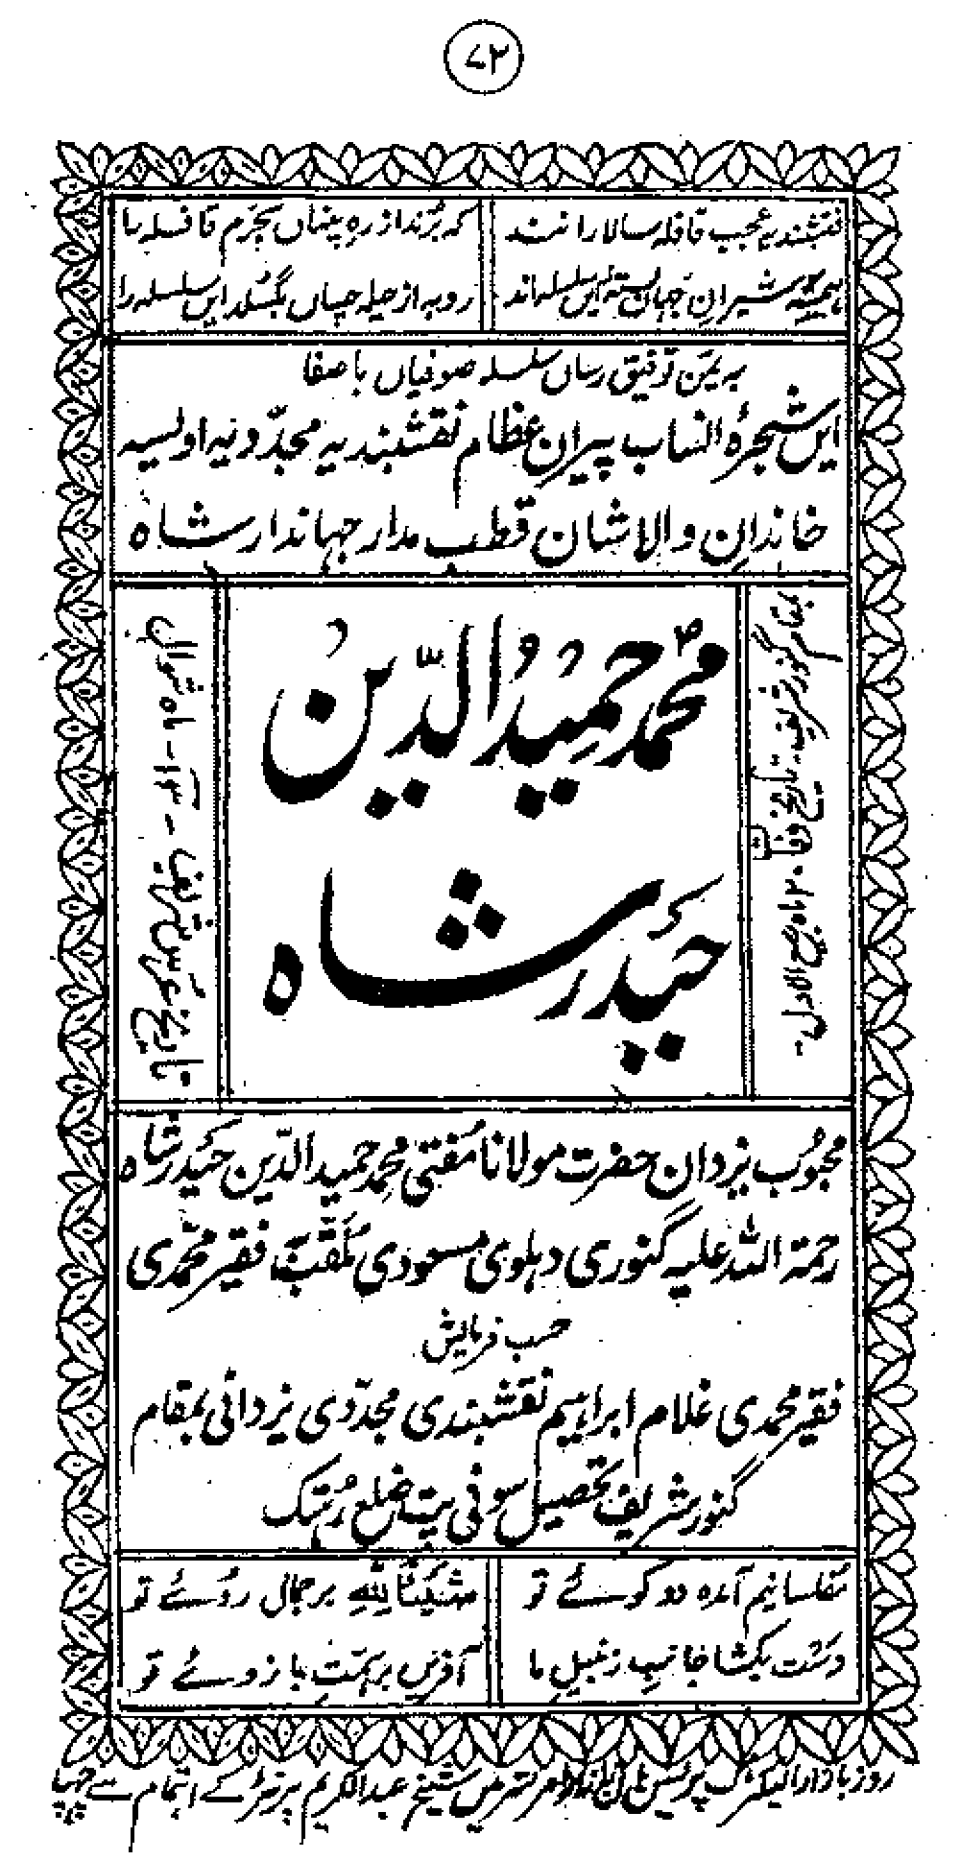 ۷۲
نقشبندیہ عجب قافلہ سالارانند
که برند از رهِ پنہاں بحرم قافلہ را
ہمہ شیرانِ جہاں بستہ ایں سلسلہ اند
روبہ از حیلہ چساں بگسلد ایں سلسلہ را
بہ یمن توفیق رساں سلسلہ صوفیاں باصفا
ایں شجرۂ انساب پیرانِ عظام نقشبندیہ مجدّدیہ اویسیہ
خاندانِ والاشان قطب مدار جہاندار شاہ
بمقام گنور شریف تاریخ وفات ۲۰ ماہ ربیع الاول
محمد حمید الدّین
حیدر شاہ
تاریخ عرس شریف
محبوب یزدان حضرت مولانا مفتی محمد حمید الدّین حیدر شاہ
رحمۃ اللہ علیہ گنوری دہلوی مسعودی ملقّب فقیر محمّدی
حسب فرمایش
فقیر محمدی غلام ابراہیم نقشبندی مجدّدی یزدانی بمقام
گنور شریف تحصیل سونی پت ضلع رہتک
مفلسانیم آمدہ در کوئے تو
شیئاً للہ بر جمال روئے تو
دست بکشا جانب زنبیل ما
آفریں بر ہمّتِ بازوئے تو
روز بازار الیکٹرک پریس ہال بازار امرتسر میں شیخ عبدالکریم پرنٹر کے اہتمام سے چھپا